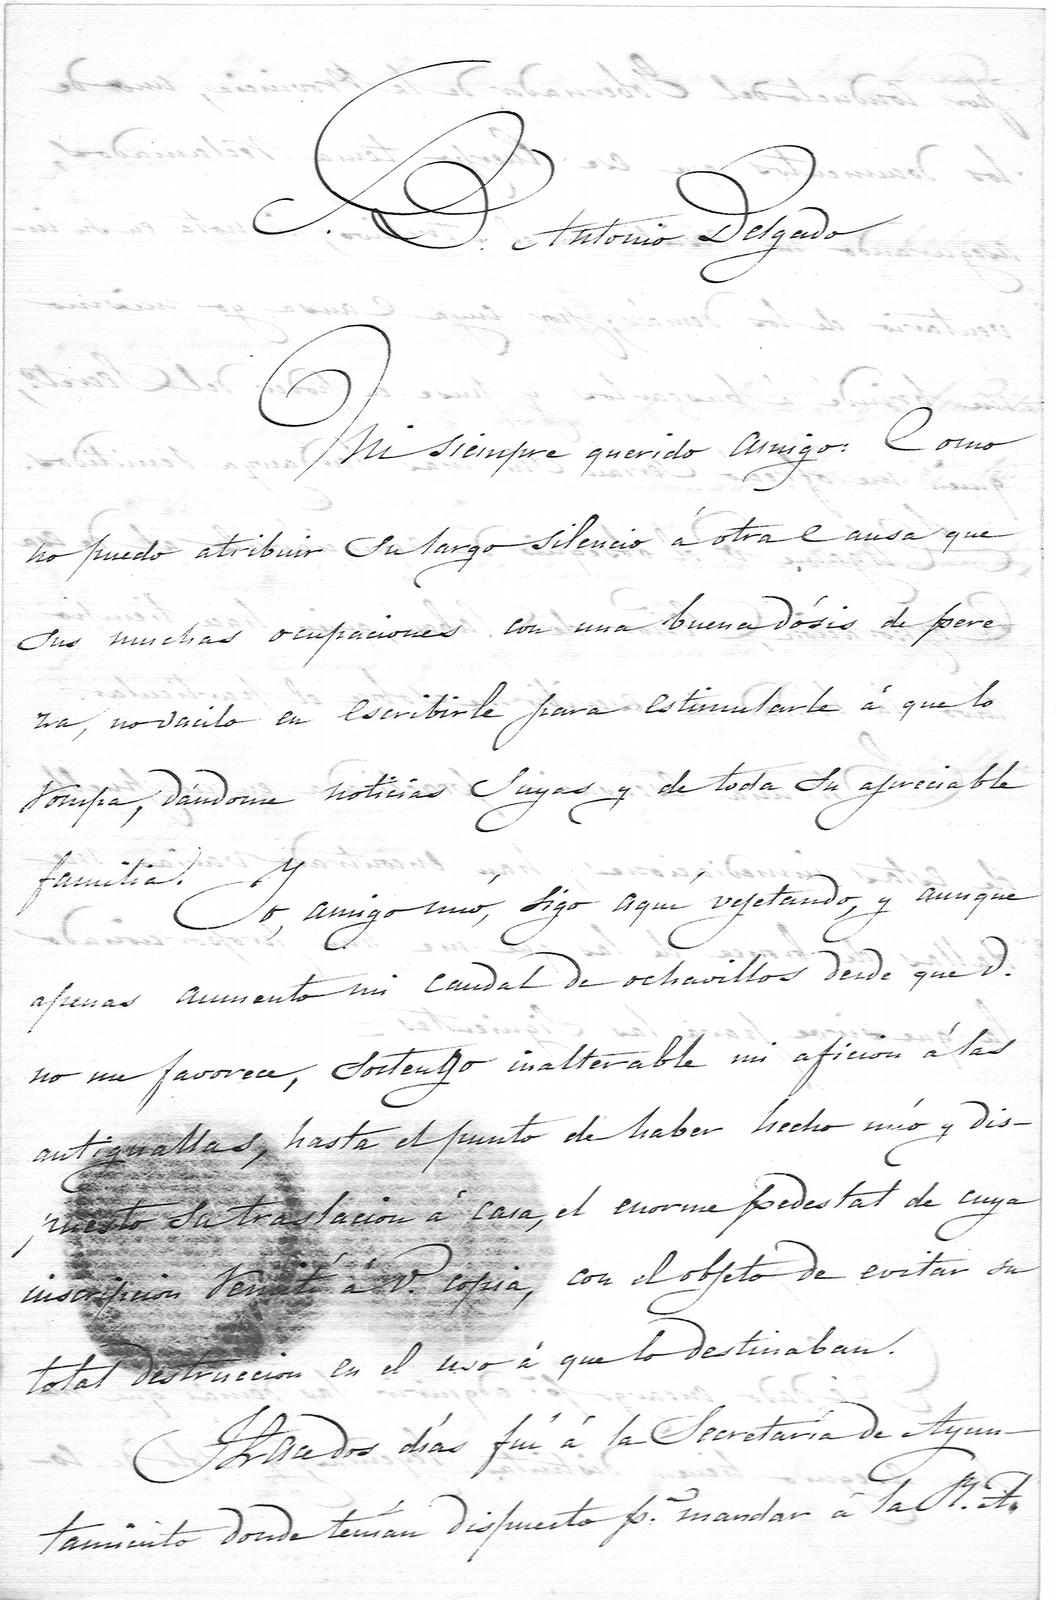 S. D. Antonio Delgado
Mi siempre querido amigo: Como
no puedo atribuir su largo silencio á otra Causa que
sus muchas ocupaciones con una buena dósis de pere
za, no vacilo en escribirle para estimularle á que lo
rompa, dándome noticias Suyas y de toda su apreciable
familia. Yo, amigo mió, sigo aquí vejetando, y aunque
apenas aumento mi caudal de ochavillos desde que V.
no me favorece, sostengo inalterable mi aficion á las
antiguallas, hasta el punto de haber hecho mió y dis-
puesto su traslacion á casa, el enorme pedestal de cuya
inscripcion remití á V. copia, con el objeto de evitar su
total destruccion en el uso á que lo destinaban.
Hace dos dias fuí á la Secretaría de Ayun-
tamiento donde tenían dispuesto p.ª mandar á la R. A.